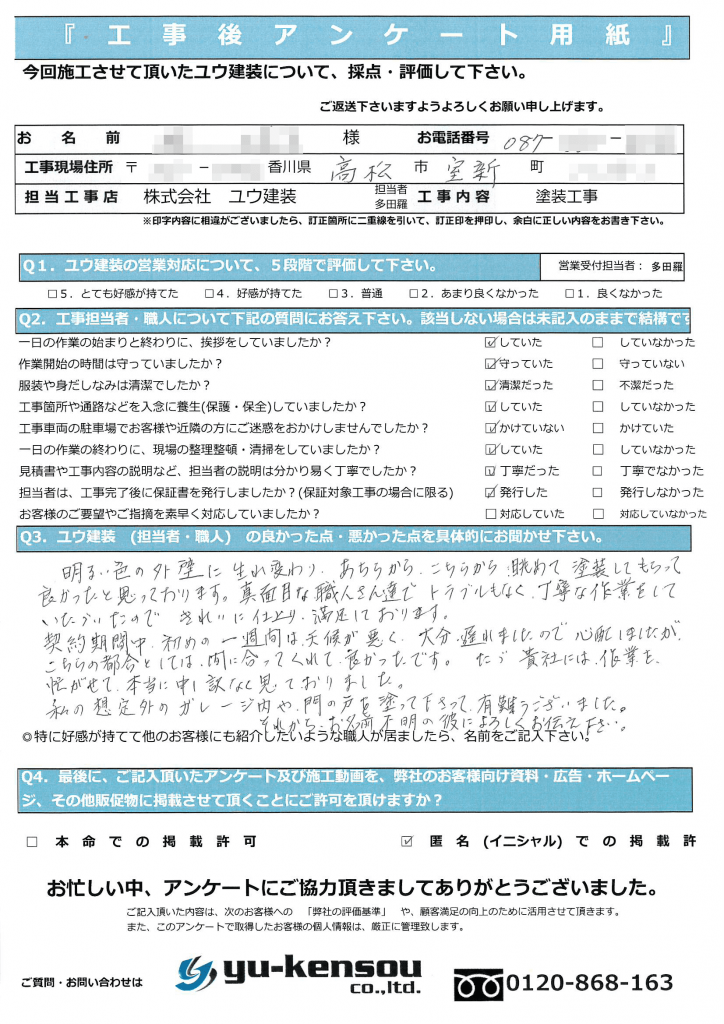 『工事後アンケート用紙』
今回施工させて頂いたユウ建装について、採点・評価して下さい。
ご返送下さいますようよろしくお願い申し上げます。
お名前 様 お電話番号 087- -
工事現場住所 〒 - 香川県 高松 市 室新 町
担当工事店 株式会社 ユウ建装 担当者 多田羅 工事内容 塗装工事
※印字内容に相違がございましたら、訂正箇所に二重線を引いて、訂正印を押印し、余白に正しい内容をお書き下さい。
Q1．ユウ建装の営業対応について、５段階で評価して下さい。 営業受付担当者： 多田羅
□５．とても好感が持てた □４．好感が持てた □３．普通 □２．あまり良くなかった □１．良くなかった
Q2．工事担当者・職人について下記の質問にお答え下さい。該当しない場合は未記入のままで結構です
一日の作業の始まりと終わりに、挨拶をしていましたか？ ☑していた □ していなかった
作業開始の時間は守っていましたか？ ☑守っていた □ 守っていない
服装や身だしなみは清潔でしたか？ ☑清潔だった □ 不潔だった
工事箇所や通路などを入念に養生(保護・保全)していましたか？ ☑していた □ していなかった
工事車両の駐車場でお客様や近隣の方にご迷惑をおかけしませんでしたか？ ☑かけていない □ かけていた
一日の作業の終わりに、現場の整理整頓・清掃をしていましたか？ ☑していた □ していなかった
見積書や工事内容の説明など、担当者の説明は分かり易く丁寧でしたか？ ☑丁寧だった □ 丁寧でなかった
担当者は、工事完了後に保証書を発行しましたか？(保証対象工事の場合に限る) ☑発行した □ 発行しなかった
お客様のご要望やご指摘を素早く対応していましたか？ □対応していた □ 対応していなかった
Q3．ユウ建装 (担当者・職人) の良かった点・悪かった点を具体的にお聞かせ下さい。
明るい色の外壁に生れ変わり、あちらから、こちらから、眺めて塗装してもらって
良かったと思っております。真面目な職人さん達でトラブルもなく、丁寧な作業をして
いただいたので きれいに仕上り、満足しております。
契約期間中、初めの一週間は天候が悪く、大分、遅れましたので心配しましたが、
こちらの都合としては、間に合ってくれて、良かったです。 ただ貴社には、作業を、
忙がせて、本当に申し訳なく思っておりました。
私の想定外のガレージ内や、門の戸を塗って下さって、有難うございました。
それから、お名前不明の彼によろしくお伝え下さい。
◎特に好感が持てて他のお客様にも紹介したいような職人が居ましたら、名前をご記入下さい。
Q4．最後に、ご記入頂いたアンケート及び施工動画を、弊社のお客様向け資料・広告・ホームペー
ジ、その他販促物に掲載させて頂くことにご許可を頂けますか？
□ 本命での掲載許可 ☑ 匿名(イニシャル)での掲載許
お忙しい中、アンケートにご協力頂きましてありがとうございました。
ご記入頂いた内容は、次のお客様への 「弊社の評価基準」 や、顧客満足の向上のために活用させて頂きます。
また、このアンケートで取得したお客様の個人情報は、厳正に管理致します。
ご質問・お問い合わせは yu-kensou co.,ltd. 0120-868-163